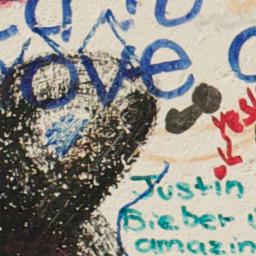 ove
yes!
Justin
Bieber i
amazin